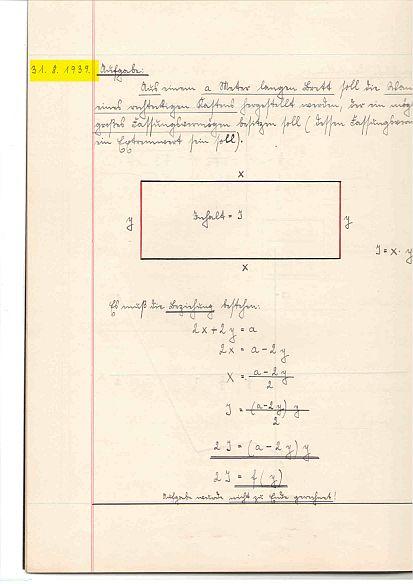 31. 8. 1939. Aufgabe:
Aus einem a Meter langen Brett soll die Wan
eines rechteckigen Kastens hergestellt werden, der ein mög
großes Fassungsvermögen besitzen soll (dessen Fassungsver
ein Extremwert sein soll).
x
y Inhalt = J y
J = x · y
x
Es muß die Beziehung bestehen:
2x + 2y = a
2x = a - 2y
x = (a - 2y) / 2
J = (a - 2y) y / 2
2J = (a - 2y) y
2J = f(y)
Aufgabe wurde nicht zu Ende gerechnet!